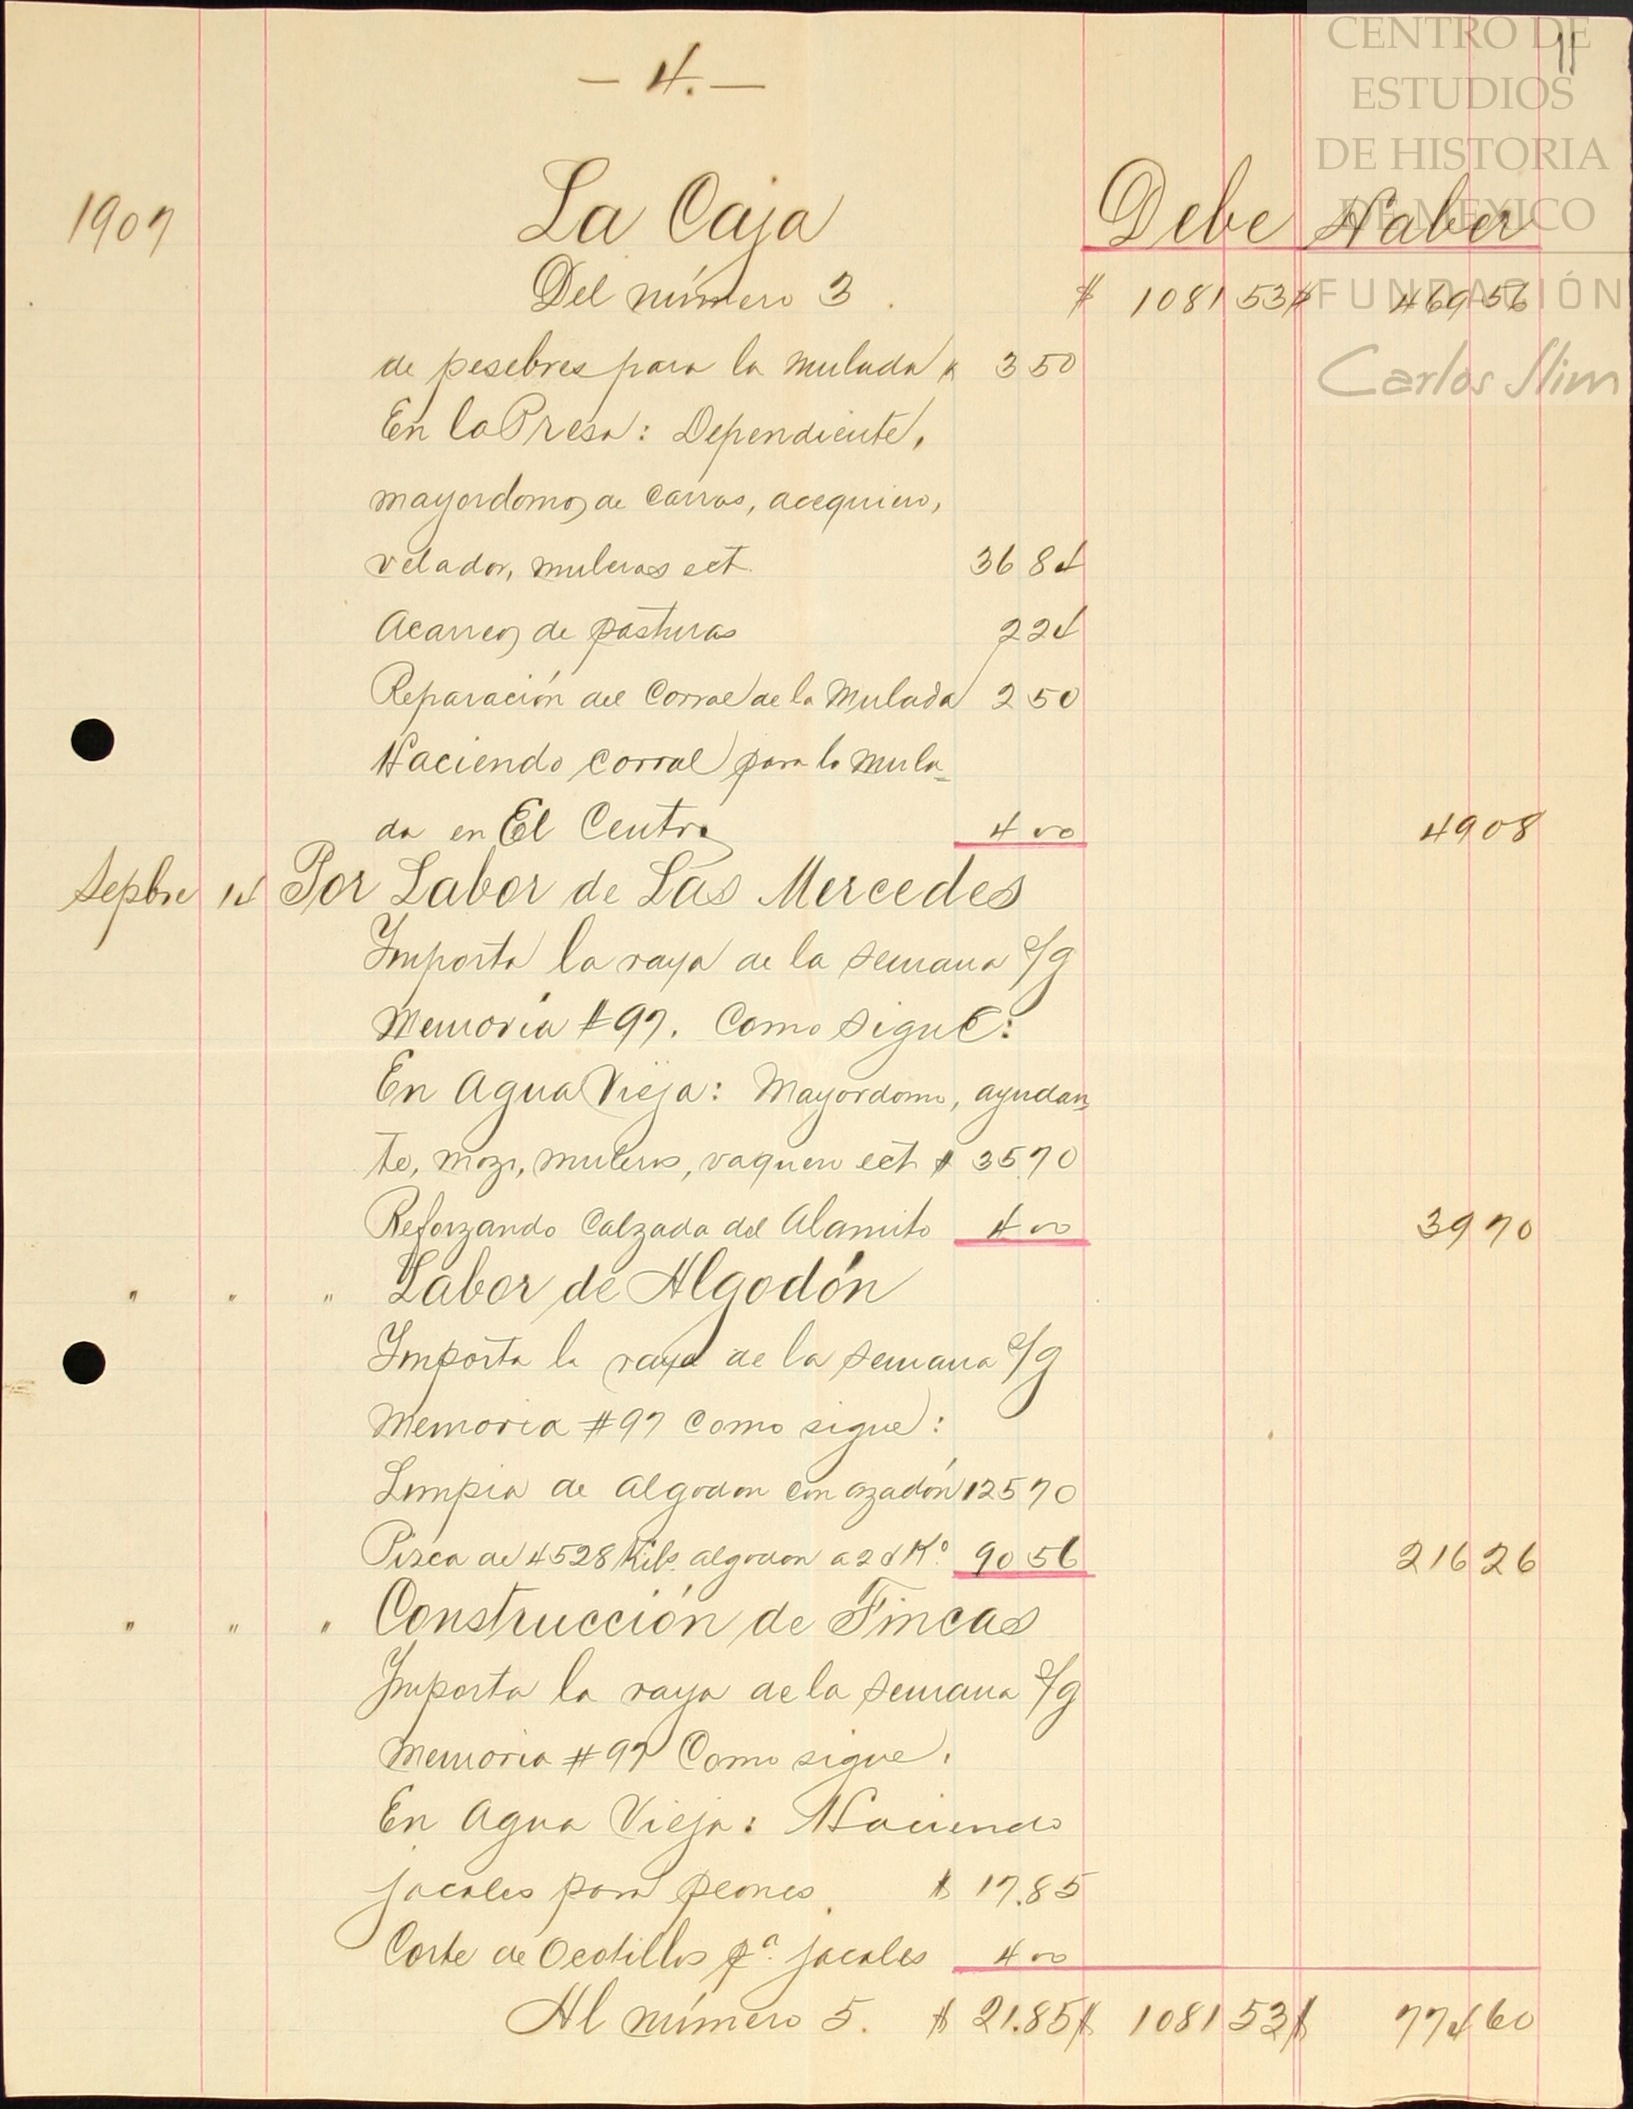 - 4. -
11
CENTRO DE
ESTUDIOS
DE HISTORIA
DE MEXICO
FUNDACIÓN
Carlos Slim
1907 La Caja Debe Haber
Del número 3. $ 1081 53 $ 469 56
de pesebres para la mulada $ 3 50
En la Presa: Dependiente,
mayordomo, de carros, acequiero,
velador, muleros ect. 36 84
Acarreo, de pasturas 2 24
Reparación del Corral de la Mulada 2 50
Haciendo corral para la mula-
da en El Centro 4 00 49 08
Sepbre 14 Por Labor de Las Mercedes
Importa la raya de la semana s/g
Memoria #97. Como sigue:
En Agua Vieja: Mayordomo, ayudan-
te, mozo, muleros, vaquero ect $ 35.70
Reforzando Calzada del Alamito 4 00 39 70
" " " Labor de Algodón
Importa la raya de la semana s/g
Memoria #97 Como sigue:
Limpia de algodon con azadón 125 70
Pizca de 4528 Kils. algodon a 2¢ Kº 90 56 216 26
" " " Construcción de Fincas
Importa la raya de la semana s/g
Memoria #97 Como sigue.
En Agua Vieja: Haciendo
jacales para peones. $ 17.85
Corte de Ocotillos pª. jacales 4 00
Al número 5. $ 21.85 $ 1081 53 $ 774 60